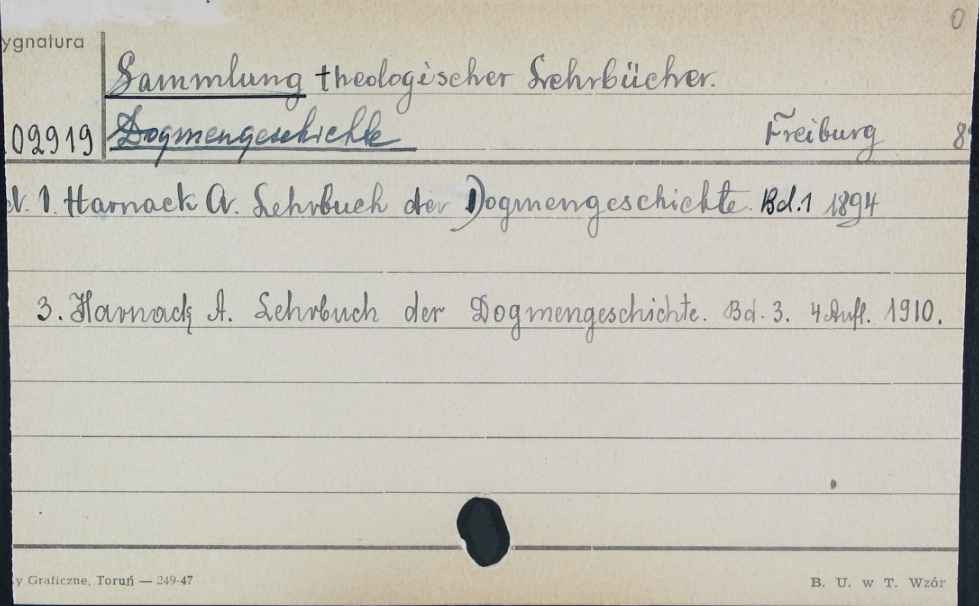 0
ygnatura
Sammlung theologischer Lehrbücher.
02919 Dogmengeschichte Freiburg 8
1. Harnack A. Lehrbuch der Dogmengeschichte. Bd.1 1894
3. Harnack A. Lehrbuch der Dogmengeschichte. Bd. 3. 4 Aufl. 1910.
y Graficzne, Toruń — 249-47
B. U. w T. Wzór